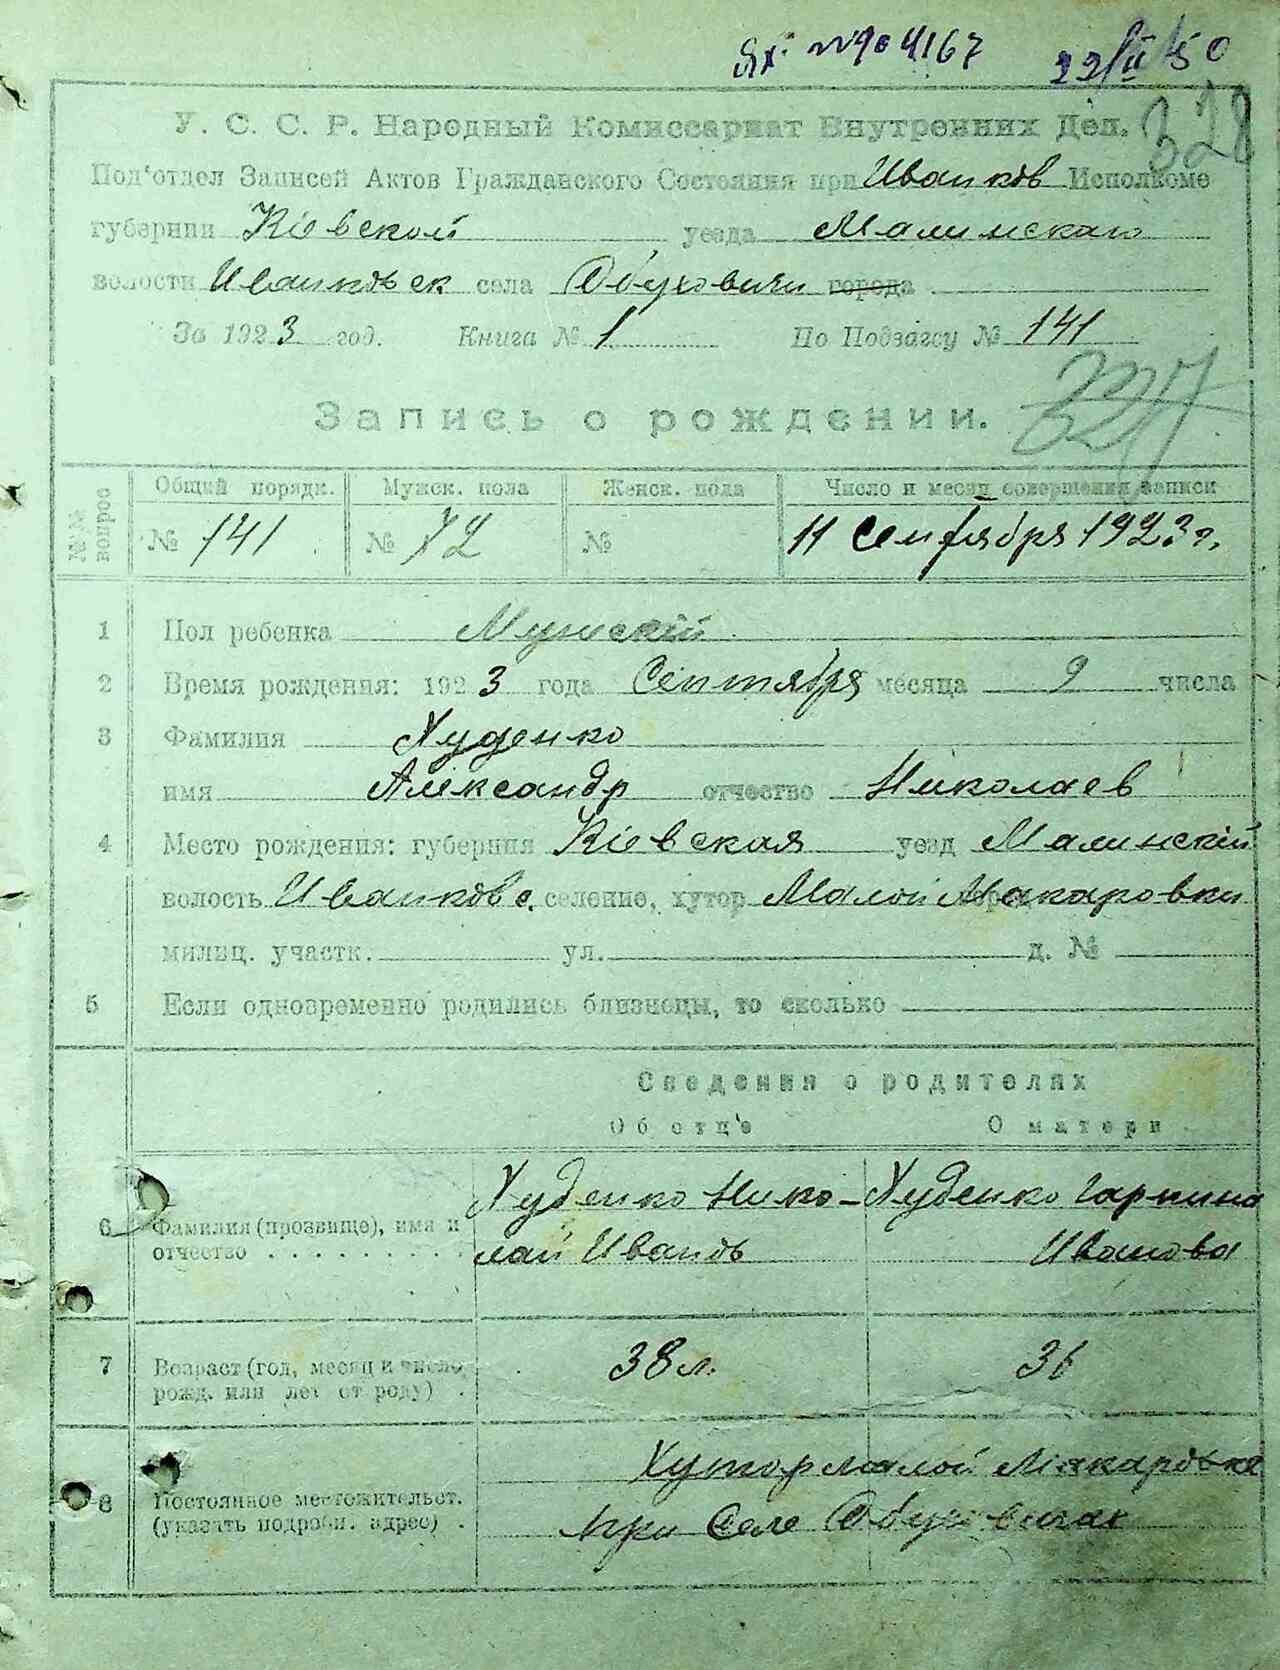 Вх. №904167 22/II 50
328
У. С. С. Р. Народный Комиссариат Внутренних Дел.
Под'отдел Записей Актов Гражданского Состояния при Иванков Исполкоме
губернии Кіевской уезда Малинскаго
волости Иванковск села Обуховичи города
За 1923 год. Книга № 1 По Подзагсу № 141
327
Запись о рождении.
№№ вопрос Общий порядк. Мужск. пола Женск. пола Число и месяц совершения записи
№ 141 № 72 № 11 Сентября 1923 г.
1 Пол ребенка Мужскій
2 Время рождения: 1923 года Сентября месяца 9 числа
3 Фамилия Худенко
имя Александр отчество Николаев
4 Место рождения: губерния Кіевская уезд Малинскій
волость Иванковс. селение, хутор Малой Макаровки
милиц. участк. ул. д. №
5 Если одновременно родились близнецы, то сколько
Сведения о родителях
Об отце О матери
Худенко Нико- Худенко Гарпина
6 Фамилия (прозвище), имя и
отчество лай Иванов Иванова
7 Возраст (год, месяц и число 38 л. 36
рожд. или лет от роду)
Хутор малой Макаровка
8 Постоянное местожительст.
(указать подробн. адрес) при Селе Обуховичах